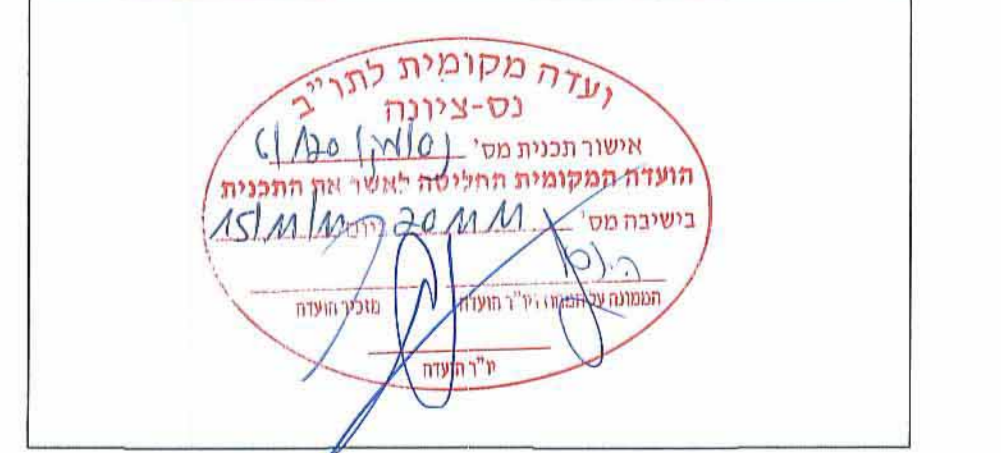 ועדה מקומית לתו"ב
נס-ציונה
אישור תכנית מס' נס/מק/120/
הועדה המקומית החליטה לאשר את התכנית
בישיבה מס' ביום 15/11/11
הממונה על המחוז יו"ר הועדה מזכיר הועדה
יו"ר הועדה